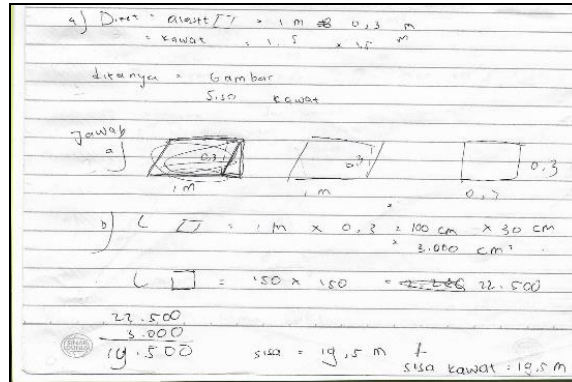 a) Diket = alas [] = 1 m 0,3 m
= kawat = 1,5 × 1,5 m
ditanya = Gambar
Siso kawat
Jawab
a) 0,3 0,3 0,3
1 m 1 m 0,3
b) L = 1 m × 0,3 = 100 cm × 30 cm
= 3.000 cm²
L = 150 × 150 = 22.500
22.500
3.000
19.500 sisa = 19,5 m
sisa kawat = 19,5 m